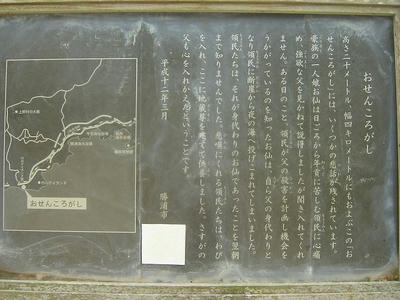 おせんころがし
高さ二十メートル、幅四キロメートルにもおよぶこの「お
せんころがし」には、いくつかの悲話が残されています。
豪族の一人娘お仙は日ごろから年貢に苦しむ領民に心痛
め、強欲な父を見かねて説得しましたが聞き入れてくれ
ません。ある日のこと、領民が父の殺害を計画し機会を
うかがっているのを知ったお仙は自ら父の身代わりと
なり領民に断崖から夜の海へ投げこまれてしまいました。
領民たちは、それが身代わりのお仙であったことを翌朝
まで知りませんでした。悲嘆にくれる領民たちは、わび
を入れ、ここに地蔵尊を建てて供養しました。さすがの
父も心を入れかえたということです。
平成十二年三月
勝浦市
おせんころがし